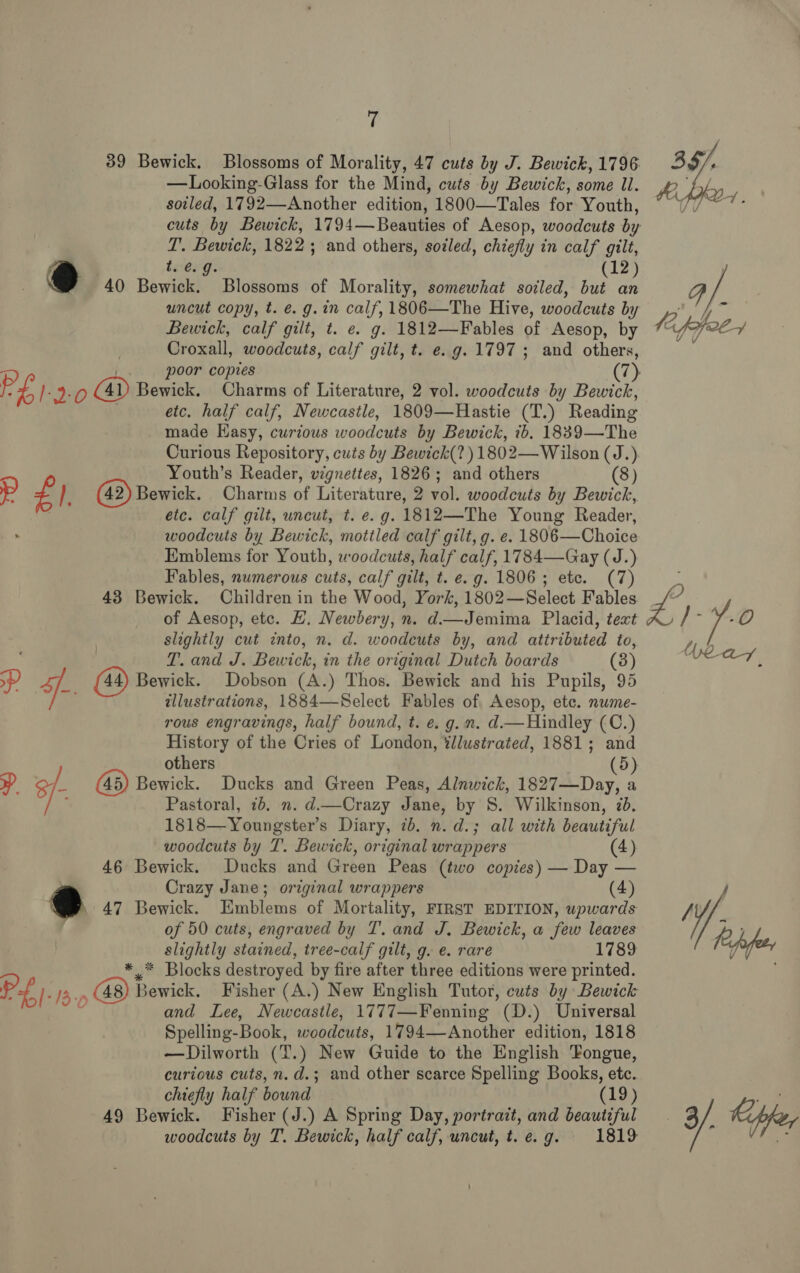 7
39 Bewick. Blossoms of Morality, 47 cuts by J. Bewick, 1796
—Looking-Glass for the Mind, cuts by Bewick, some ll.
soiled, 1792—Another edition, 1800—Tales for Youth,
cuts by Bewick, 1794—Beauties of Aesop, woodcuts by
T. Bewick, 1822; and others, soiled, chiefly in calf gilt,
t. e. g. (12)
38/.
40 Bewick. Blossoms of Morality, somewhat soiled, but an
uncut copy, t. e. g. in calf, 1806—The Hive, woodcuts by
Bewick, calf gilt, t. e. g. 1812—Fables of Aesop, by
Croxall, woodcuts, calf gilt, t. e. g. 1797; and others,
poor copies (7)
9/-
P £1.2.0 41 Bewick. Charms of Literature, 2 vol. woodcuts by Bewick,
etc. half calf, Newcastle, 1809—Hastie (T.) Reading
made Easy, curious woodcuts by Bewick, ib. 1839—The
Curious Repository, cuts by Bewick(?) 1802—Wilson (J.)
Youth's Reader, vignettes, 1826; and others (8)
P £1. 42 Bewick. Charms of Literature, 2 vol. woodcuts by Bewick,
etc. calf gilt, uncut, t. e. g. 1812—The Young Reader,
woodcuts by Bewick, mottled calf gilt, g. e. 1806—Choice
Emblems for Youth, woodcuts, half calf, 1784—Gay (J.)
Fables, numerous cuts, calf gilt, t. e. g. 1806; etc. (7)
43 Bewick. Children in the Wood, York, 1802—Select Fables
of Aesop, etc. E. Newbery, n. d.—Jemima Placid, text
slightly cut into, n. d. woodcuts by, and attributed to,
T. and J. Bewick, in the original Dutch boards (3)
£1-4.0
P 5/-. 44 Bewick. Dobson (A.) Thos. Bewick and his Pupils, 95
illustrations, 1884—Select Fables of Aesop, etc. nume-
rous engravings, half bound, t. e. g. n. d.—Hindley (C.)
History of the Cries of London, illustrated, 1881; and
others (5)
P. 8/- 45 Bewick. Ducks and Green Peas, Alnwick, 1827—Day, a
Pastoral, ib. n. d.—Crazy Jane, by S. Wilkinson, ib.
1818—Youngster's Diary, ib. n. d.; all with beautiful
woodcuts by T. Bewick, original wrappers (4)
46 Bewick. Ducks and Green Peas (two copies) — Day —
Crazy Jane; original wrappers (4)
47 Bewick. Emblems of Mortality, FIRST EDITION, upwards
of 50 cuts, engraved by T. and J. Bewick, a few leaves
slightly stained, tree-calf gilt, g. e. rare 1789
*** Blocks destroyed by fire after three editions were printed.
P £1.13.0 48 Bewick. Fisher (A.) New English Tutor, cuts by Bewick
and Lee, Newcastle, 1777—Fenning (D.) Universal
Spelling-Book, woodcuts, 1794—Another edition, 1818
—Dilworth (T.) New Guide to the English Tongue,
curious cuts, n. d.; and other scarce Spelling Books, etc.
chiefly half bound (19)
49 Bewick. Fisher (J.) A Spring Day, portrait, and beautiful
woodcuts by T. Bewick, half calf, uncut, t. e. g. 1819
3/.